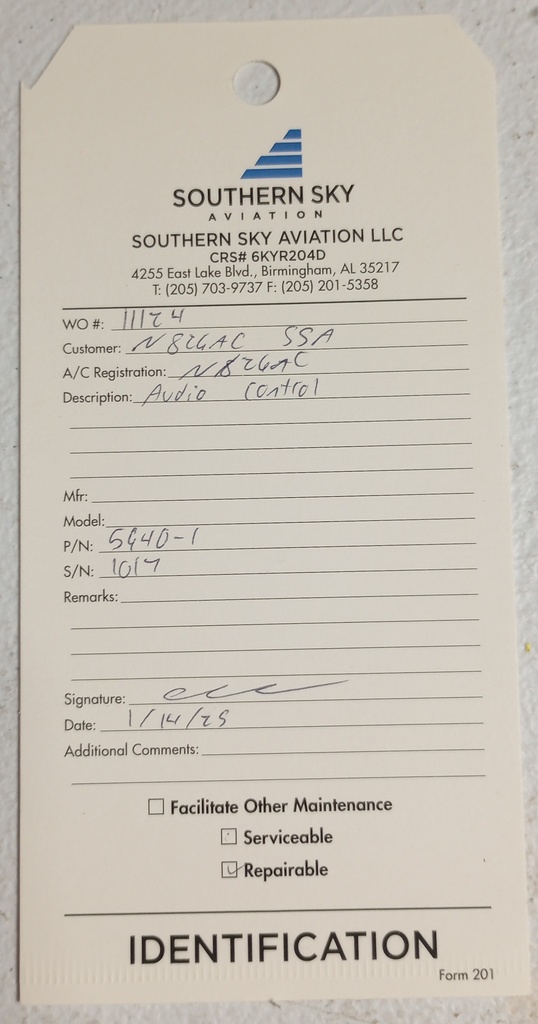 SOUTHERN SKY
AVIATION
SOUTHERN SKY AVIATION LLC
CRS# 6KYR204D
4255 East Lake Blvd., Birmingham, AL 35217
T: (205) 703-9737 F: (205) 201-5358
WO #: 11124
Customer: N826AC SSA
A/C Registration: N826AC
Description: Audio Control
Mfr:
Model:
P/N: 5640-1
S/N: 1017
Remarks:
Signature:
Date: 1/14/25
Additional Comments:
Facilitate Other Maintenance
Serviceable
Repairable
IDENTIFICATION
Form 201